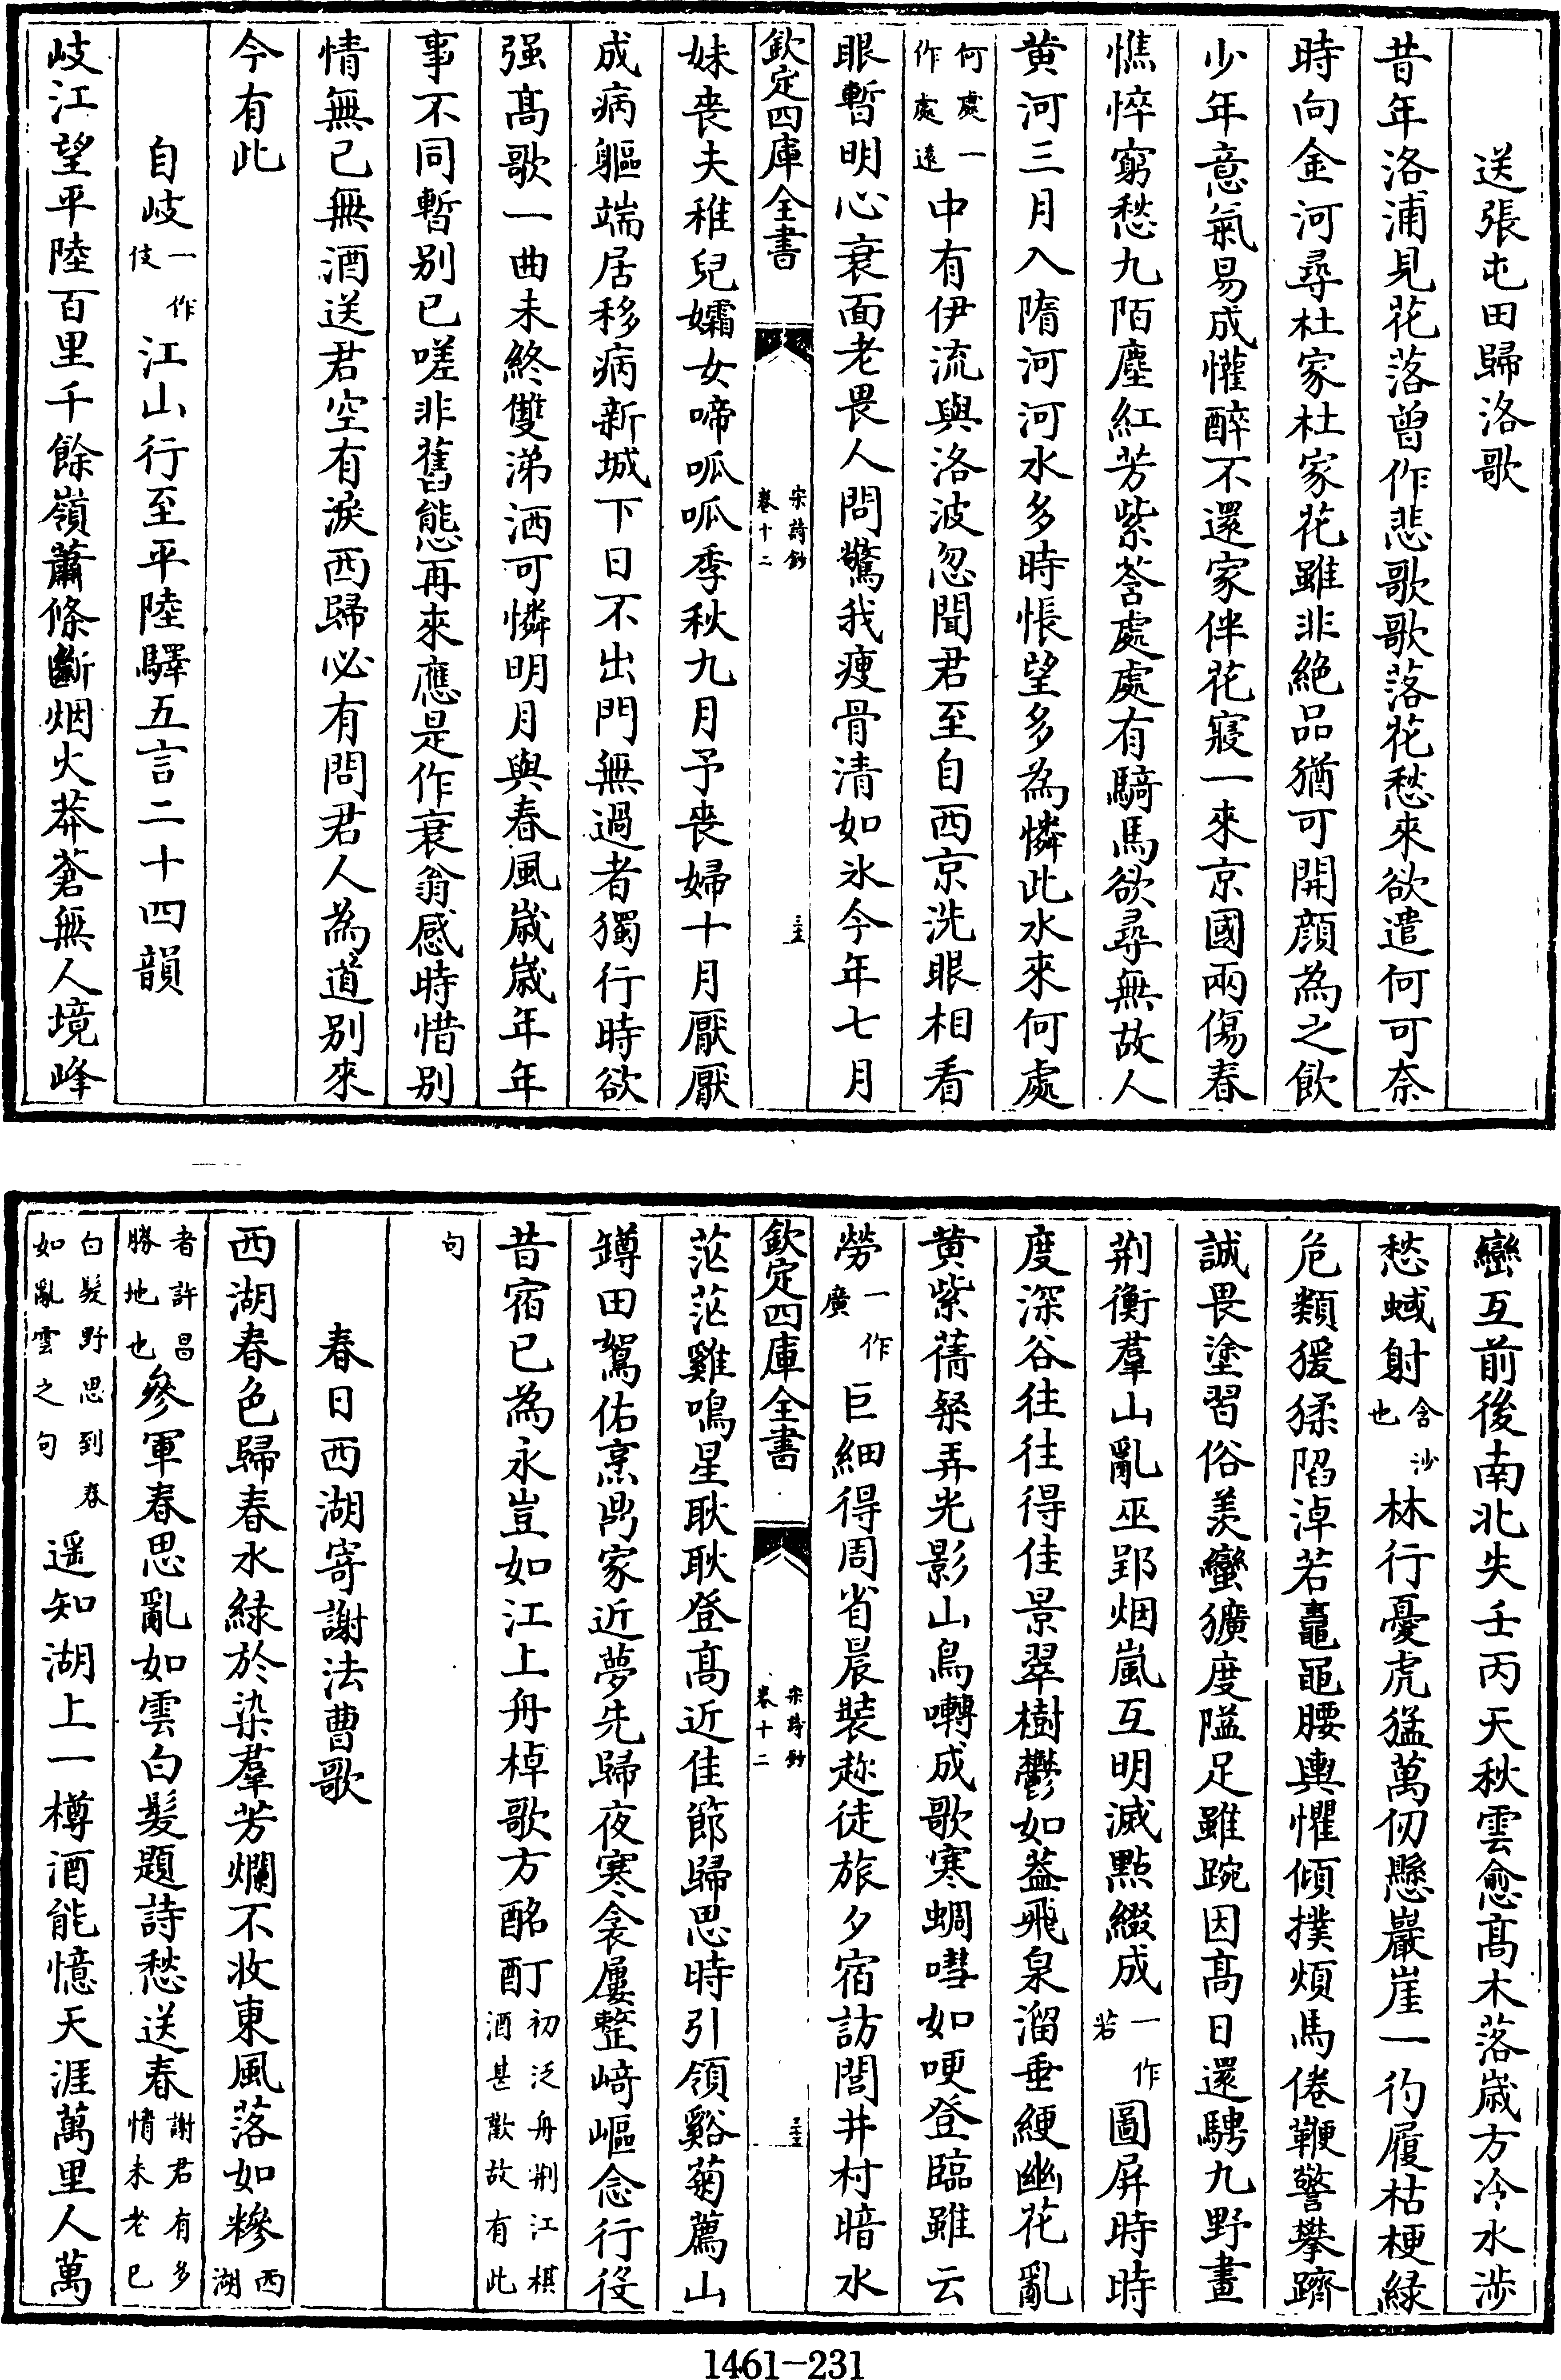 送張屯田歸洛歌
昔年洛浦見花落曾作悲歌歌落花愁來欲遣何可奈
時向金河尋杜家杜家花雖非絶品猶可開顔為之飲
少年意氣易成懽醉不還家伴花寢一來京國兩傷春
憔悴窮愁九陌塵紅芳紫萼處處有騎馬欲尋無故人
黄河三月入隋河河水多時悵望多為憐此水來何處
何處一作處遠中有伊流與洛波忽聞君至自西京洗眼相看
眼暫明心衰面老畏人問驚我瘦骨清如氷今年七月
欽定四庫全書 宋詩鈔 卷十二
妹喪夫稚兒孀女啼呱呱季秋九月予喪婦十月厭厭
成病軀端居移病新城下日不出門無過者獨行時欲
强髙歌一曲未終雙涕洒可憐明月與春風嵗嵗年年
事不同暫别已嗟非舊態再來應是作衰翁感時惜别
情無已無酒送君空有淚西歸必有問君人為道别來
今有此
自岐一作伎江山行至平陸驛五言二十四韻
岐江望平陸百里千餘嶺蕭條斷烟火莽蒼無人境峰
巒互前後南北失壬丙天秋雲愈髙木落嵗方冷水渉
愁蜮射含沙也林行憂虎猛萬仞懸巖崖一彴履枯梗緑
危類猨猱陷淖若鼃黽腰輿懼傾撲煩馬倦鞭警攀躋
誠畏塗習俗羡蠻獷度隘足雖踠因髙日還騁九野畫
荆衡羣山亂巫郢烟嵐互明滅點綴成一作若圖屏時時
度深谷往往得佳景翠樹鬱如葢飛泉溜垂綆幽花亂
黄紫蒨粲弄光影山鳥囀成歌寒蜩嘒如哽登臨雖云
勞一作廣巨細得周省晨裝趂徒旅夕宿訪閭井村暗水
欽定四庫全書 宋詩鈔 卷十二
茫茫雞鳴星耿耿登髙近佳節歸思時引領谿菊薦山
罇田駕佑烹鼎家近夢先歸夜寒衾屢整崎嶇念行役
昔宿已為永豈如江上舟棹歌方酩酊初泛舟荆江棋酒甚歡故有此
句
春日西湖寄謝法曹歌
西湖春色歸春水緑於染羣芳爛不收東風落如糝西湖
者許昌勝地也參軍春思亂如雲白髮題詩愁送春謝君有多情未老已
白髮野思到春如亂雲之句遥知湖上一樽酒能憶天涯萬里人萬
1461-231